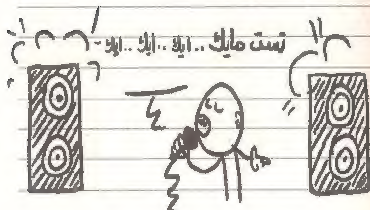 تست مايك .. ايك .. ايك .. ايك